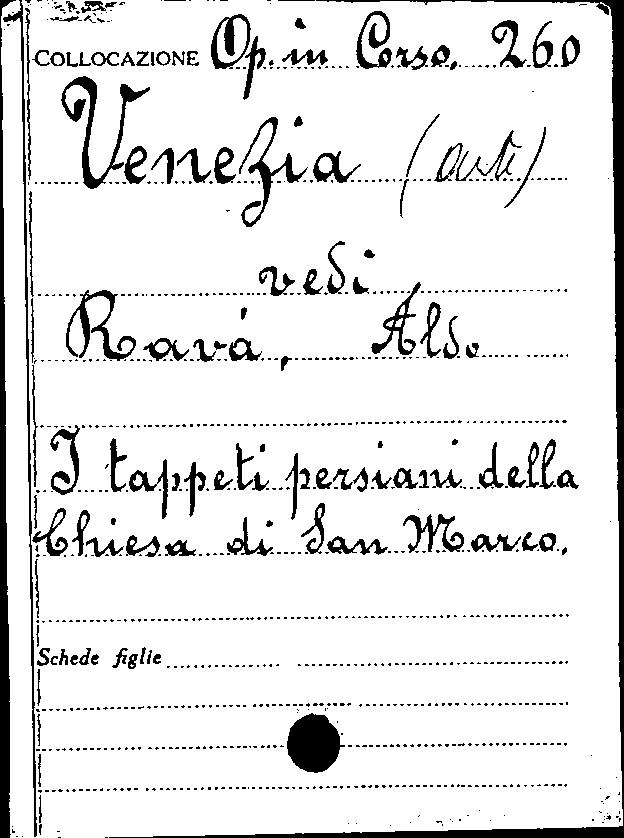 COLLOCAZIONE Op. in Corso. 260
Venezia (arte)
vedi
Ravà, Aldo
I tappeti persiani della
Chiesa di San Marco.
Schede figlie